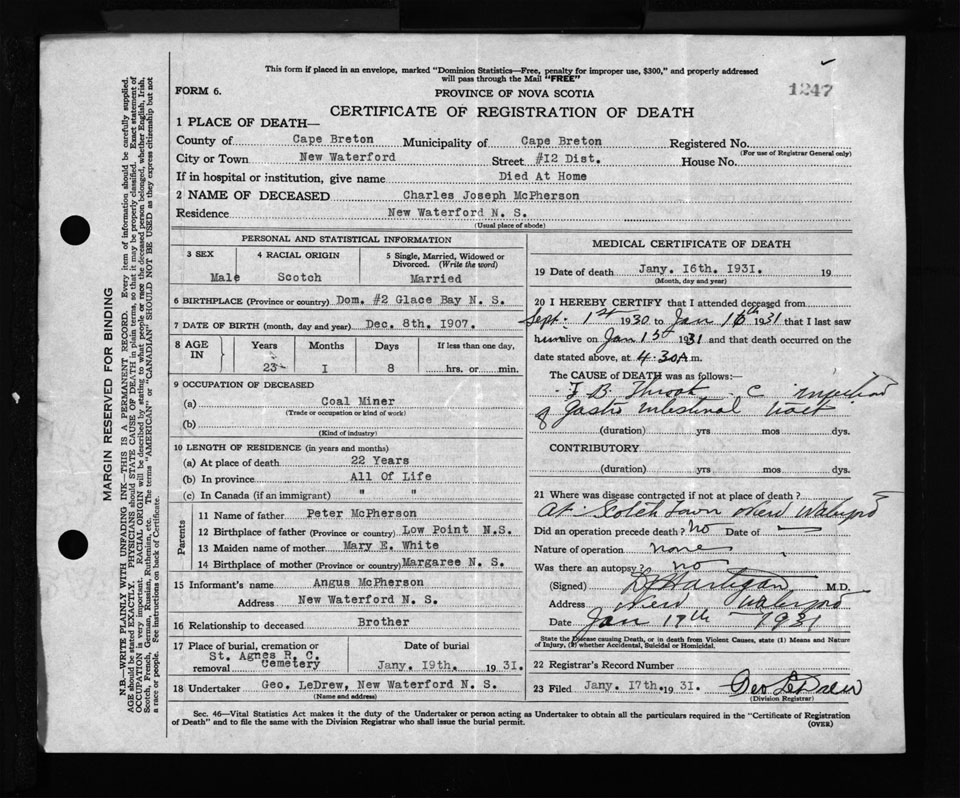 This form if placed in an envelope, marked "Dominion Statistics—Free, penalty for improper use, $300," and properly addressed
will pass through the Mail "FREE"
FORM 6.
PROVINCE OF NOVA SCOTIA
1247
CERTIFICATE OF REGISTRATION OF DEATH
1 PLACE OF DEATH—
County of Cape Breton Municipality of Cape Breton Registered No.
(For use of Registrar General only)
City or Town New Waterford Street #12 Dist. House No.
If in hospital or institution, give name Died At Home
2 NAME OF DECEASED Charles Joseph McPherson
Residence New Waterford N. S.
(Usual place of abode)
PERSONAL AND STATISTICAL INFORMATION
3 SEX 4 RACIAL ORIGIN 5 Single, Married, Widowed or
Divorced. (Write the word)
Male Scotch Married
6 BIRTHPLACE (Province or country) Dom. #2 Glace Bay N. S.
7 DATE OF BIRTH (month, day and year) Dec. 8th. 1907.
8 AGE IN Years Months Days If less than one day,
23 I 8 hrs. or min.
9 OCCUPATION OF DECEASED
(a) Coal Miner
(Trade or occupation or kind of work)
(b)
(Kind of industry)
10 LENGTH OF RESIDENCE (in years and months)
(a) At place of death 22 Years
(b) In province All Of Life
(c) In Canada (if an immigrant) " "
Parents
11 Name of father Peter McPherson
12 Birthplace of father (Province or country) Low Point N.S.
13 Maiden name of mother Mary E. White
14 Birthplace of mother (Province or country) Margaree N. S.
15 Informant's name Angus McPherson
Address New Waterford N. S.
16 Relationship to deceased Brother
17 Place of burial, cremation or removal St. Agnes R. C. Cemetery
Date of burial
Jany. 19th. 1931.
18 Undertaker Geo. LeDrew, New Waterford N. S.
(Name and address)
MEDICAL CERTIFICATE OF DEATH
19 Date of death Jany. 16th. 1931. 19
(Month, day and year)
20 I HEREBY CERTIFY that I attended deceased from
Sept. 1st 1930 to Jan 16th 1931 that I last saw
him alive on Jan 15th 1931 and that death occurred on the
date stated above, at 4.30 A.m.
The CAUSE of DEATH was as follows:—
T B. Throat c infection
of Gastro intestinal tract
(duration) yrs mos dys.
CONTRIBUTORY
(duration) yrs mos dys.
21 Where was disease contracted if not at place of death?
At Scotch Town New Waterford
Did an operation precede death? No Date of
Nature of operation none
Was there an autopsy? no
(Signed) M.D.
Address New Waterford
Date Jan 17th 1931
State the Disease causing Death, or in death from Violent Causes, state (1) Means and Nature
of Injury, (2) whether Accidental, Suicidal or Homicidal.
22 Registrar's Record Number
23 Filed Jany. 17th. 1931. Geo LeDrew
(Division Registrar)
Sec. 46—Vital Statistics Act makes it the duty of the Undertaker or person acting as Undertaker to obtain all the particulars required in the "Certificate of Registration
of Death" and to file the same with the Division Registrar who shall issue the burial permit.
(OVER)
MARGIN RESERVED FOR BINDING
N.B.—WRITE PLAINLY WITH UNFADING INK—THIS IS A PERMANENT RECORD. Every item of information should be carefully supplied.
AGE should be stated EXACTLY. PHYSICIANS should STATE CAUSE OF DEATH in plain terms, so that it may be properly classified. Exact statement of
OCCUPATION is very important. RACIAL ORIGIN will be described by stating to what people or race the deceased person belonged, whether English, Irish,
Scotch, French, German, Russian, Ruthenian, etc. The terms "AMERICAN" or "CANADIAN" SHOULD NOT BE USED as they express citizenship but not
a race or people. See instructions on back of Certificate.